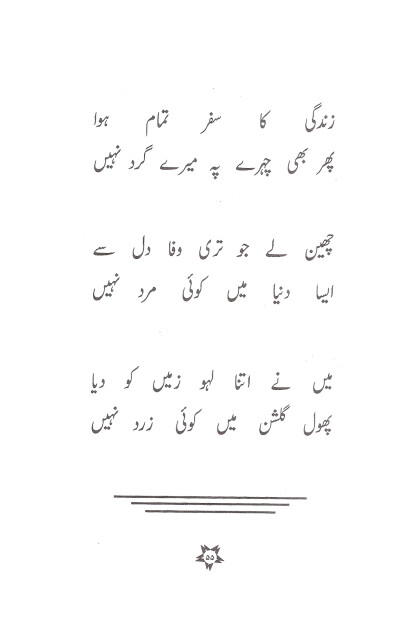 زندگی کا سفر تمام ہوا
پھر بھی چہرے پہ میرے گرد نہیں
چھین لے جو تری وفا دل سے
ایسا دنیا میں کوئی مرد نہیں
میں نے اتنا لہو زمیں کو دیا
پھول گلشن میں کوئی زرد نہیں
۵۵